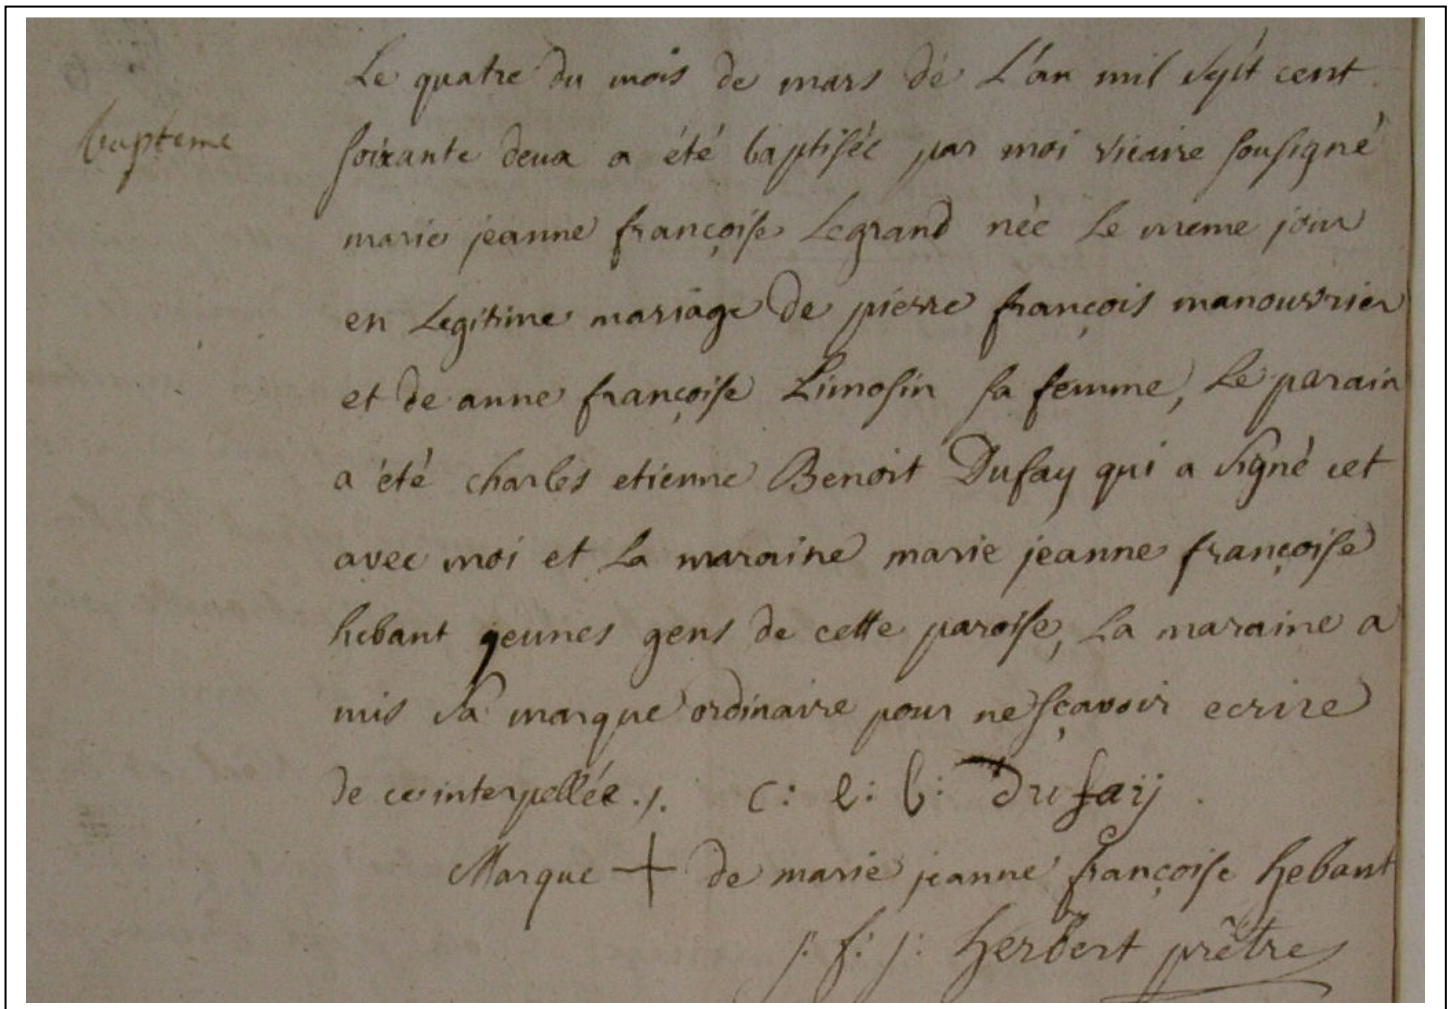 Le quatre du mois de mars de L'an mil sept cent
bapteme
soixante deux a été baptisée par moi vicaire sousigné
marie jeanne françoise Legrand née Le meme jour
en Legitime mariage de pierre françois manouvrier
et de anne françoise Limosin sa femme, Le parain
a été charles etienne Benoit Dufay qui a signé cet
avec moi et La maraine marie jeanne françoise
hebant jeunes gens de cette paroisse, La maraine a
mis sa marque ordinaire pour ne sçavoir ecrire
de ce interpellée ./. c: e: b: dufaÿ
Marque + de marie jeanne françoise hebant
p: f: j: herbert prêtre